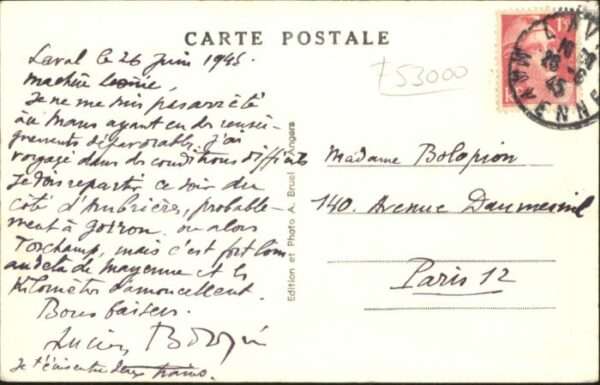 CARTE POSTALE
Laval le 26 Juin 1945.
Je ne me suis pas arrêté
au Mans ayant eu des rensei-
gnements défavorables. J'ai
voyagé dans des conditions difficiles
Je dois repartir ce soir du
côté d'Ambrières, probable-
ment à Gorron. ou alors
Torchamp, mais c'est fort loin
au delà de Mayenne et les
Kilomètres s'amoncellent.
Bons baisers.
Lucien
Je t'écris entre deux trains.
+53000
Edition et Photo A. Bruel Angers
LAVAL
26 -6
45
MAYENNE
Madame Bolopion
140. Avenue Daumesnil
Paris 12